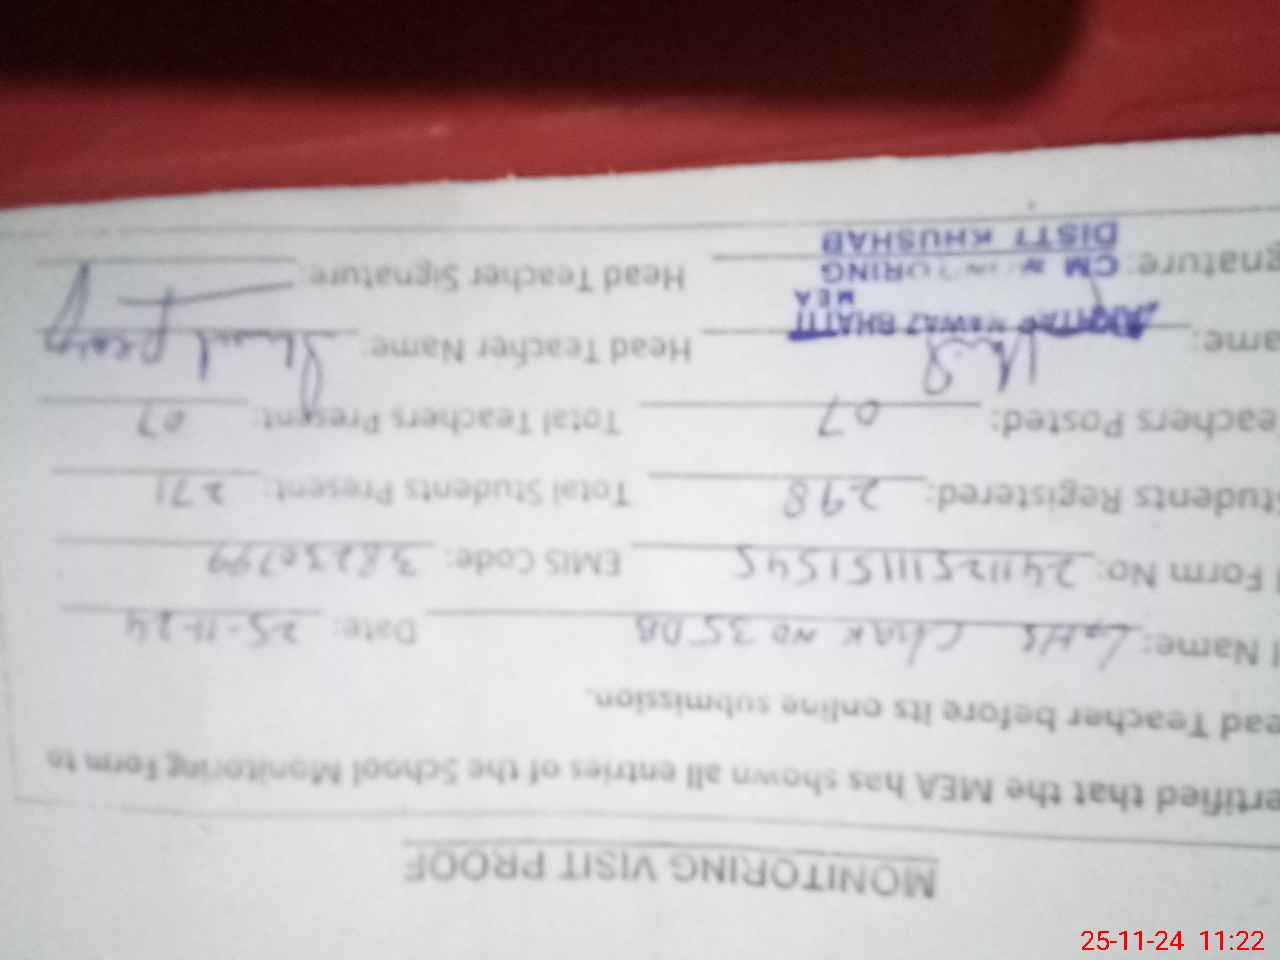 MONITORING VISIT PROOF
ertified that the MEA has shown all entries of the School Monitoring Form to
ead Teacher before its online submission.
l Name: GHS CHAK NO 35 DB Date: 25-11-24
l Form No: 241125111151545 EMIS Code: 38230799
tudents Registered: 298 Total Students Present: 271
eachers Posted: 07 Total Teachers Present: 07
ame: NAWAZ BHATTI Head Teacher Name:
MEA
gnature: CM MONITORING Head Teacher Signature:
DISTT KHUSHAB
25-11-24 11:22